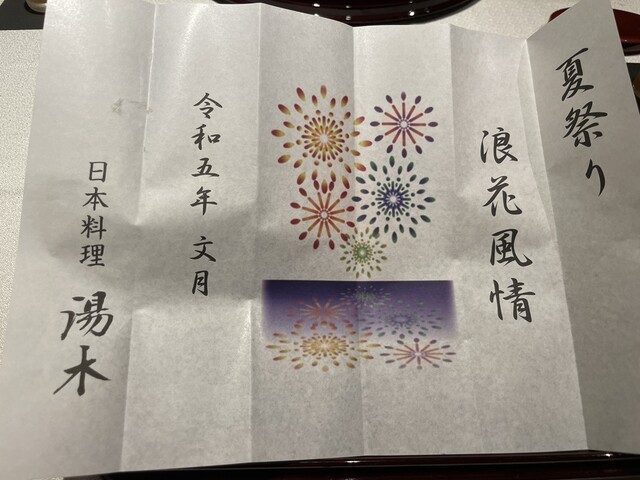 夏祭り
浪花風情
令和五年 文月
日本料理 湯木